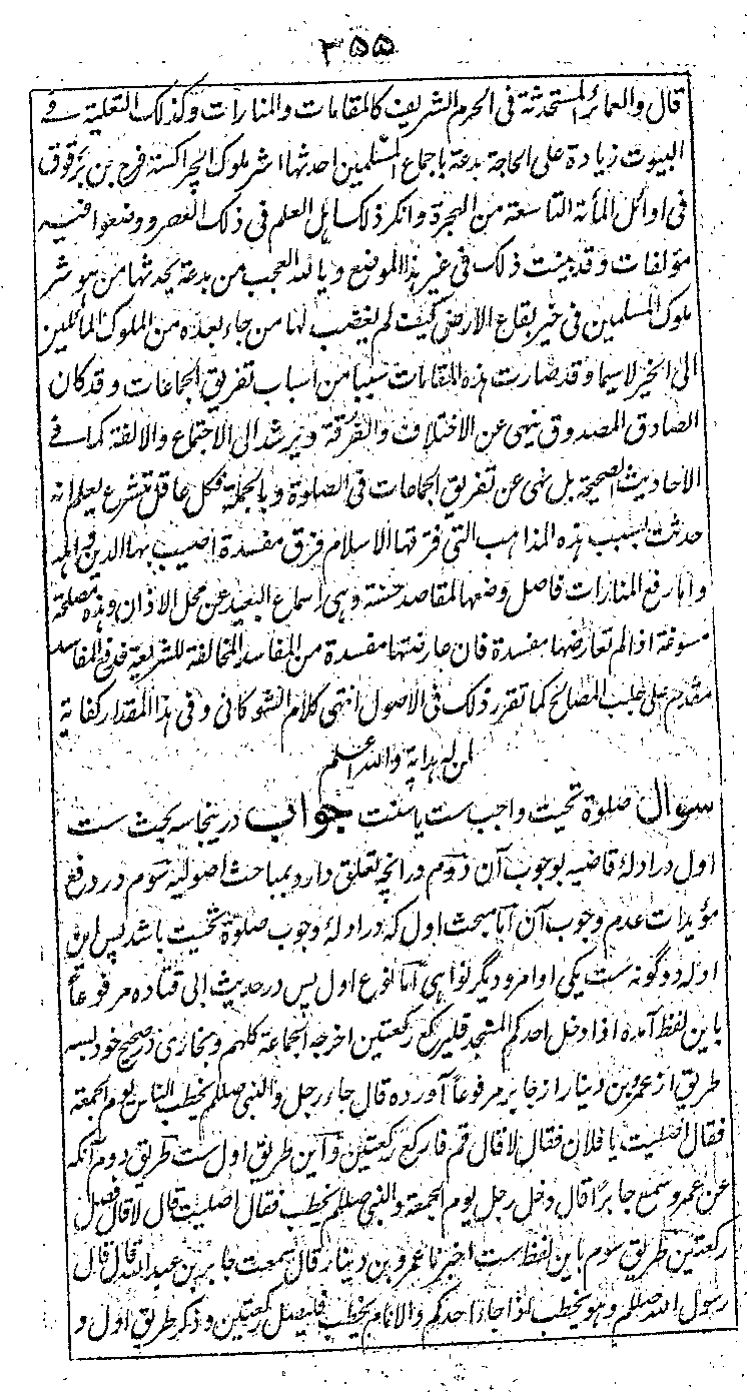 ٣٥٥
قال والعمائر المستحدثة فی الحرم الشریف کالمقامات والمنارات وکذلک التعلیة فے
البیوت زیادة علی الحاجة بدعة باجماع المسلمین احدثها اشر ملوک الچراکسة فرج بن برقوق
فی اوائل المأئة التاسعة من الهجرة وانکر ذلک اهل العلم فی ذلک العصر ووضعوا فیه
مؤلفات وقد بینت ذلک فی غیر هذا الموضع ویا لله العجب من بدعة یحدثها من هو شر
ملوک المسلمین فی خیر بقاع الارض کیف لم یغضب لها من جاء بعده من الملوک المائلین
الی الخیر لاسیما وقد صارت هذه المقامات سببا من اسباب تفریق الجماعات وقد کان
الصادق المصدوق ینهی عن الاختلاف والفرقة ویرشد الی الاجتماع والالفة کما فے
الاحادیث الصحیحة بل نهی عن تفریق الجماعات فی الصلوة وبالجملة فکل عاقل متشرع یعلم انه
حدثت بسبب هذه المذاهب التی فرقت الاسلام فرق مفسدة اصیب بها الدین واهله
واما رفع المنارات فاصل وضعها لمقاصد حسنة وهی اسماع البعید عن محل الاذان وهذه مصلحة
مسوغة اذا لم تعارضها مفسدة فان عارضتها مفسدة من المفاسد المخالفة للشریعة فدفع المفاسد
مقدم علی جلب المصالح کما تقرر ذلک فی الاصول انتهی کلام الشوکانی وفی هذا المقدار کفایة
لمن له هدایة والله اعلم
سوال صلوة تحیت واجب ست یا سنت جواب درینجا سه بحث ست
اول در ادلهٔ قاضیه بوجوب آن دوم در انچه تعلق دارد بمباحث اصولیه سوم در دفع
مؤیدات عدم وجوب آن اما مبحث اول که در ادلهٔ وجوب صلوة تحیت باشد پس این
ادله دو گونه ست یکی اوامر و دیگر نواهی اما نوع اول پس در حدیث ابی قتاده مرفوعاً
باین لفظ آمده اذا دخل احدکم المسجد فلیرکع رکعتین اخرجه الجماعة کلهم وبخاری در صحیح خود بسه
طریق از عمرو بن دینار از جابر مرفوعاً آورده قال جاء رجل والنبی صللم یخطب الناس یوم الجمعة
فقال اصلیت یا فلان فقال لا قال قم فارکع رکعتین واین طریق اول ست طریق دوم آنکه
عن عمرو سمع جابرا قال دخل رجل یوم الجمعة والنبی صللم یخطب فقال اصلیت قال لا قال فصل
رکعتین طریق سوم باین لفظ ست اخبرنا عمرو بن دینار قال سمعت جابر بن عبدالله قال قال
رسول الله صللم وهو یخطب اذا جاء احدکم والامام یخطب فلیصل رکعتین وذکر طریق اول و